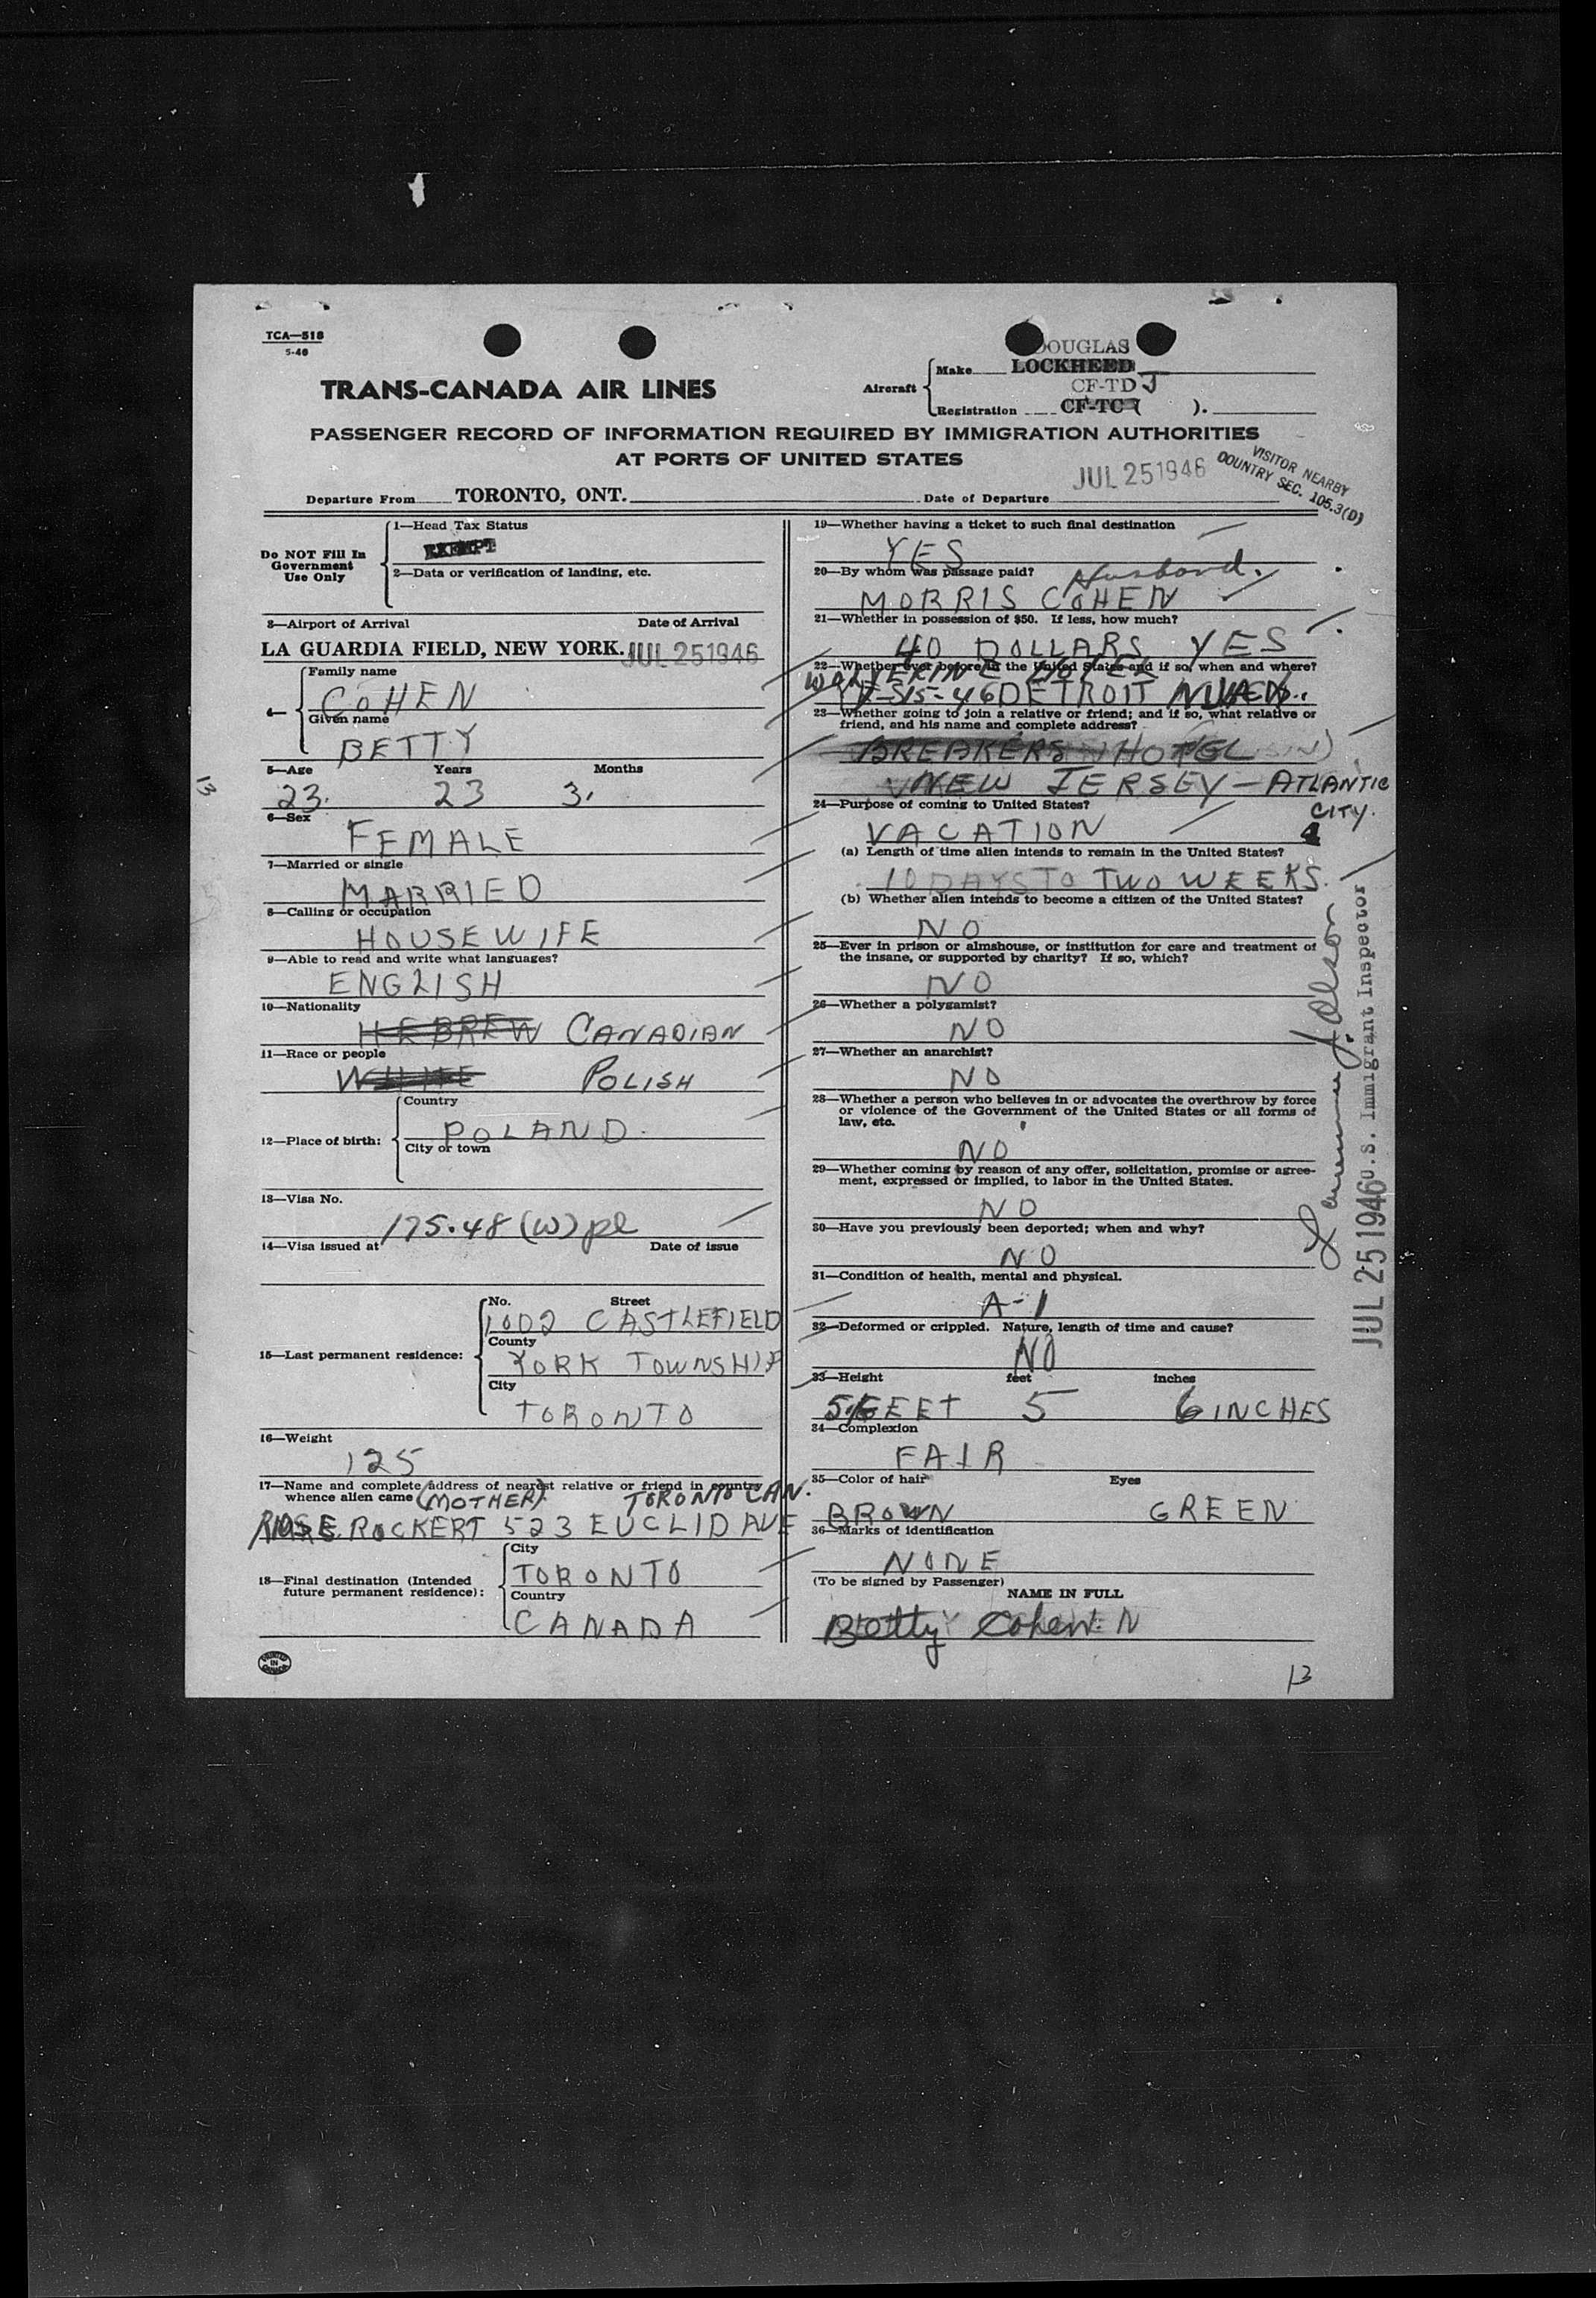 TCA—518
5-46
DOUGLAS
Make LOCKHEED
TRANS-CANADA AIR LINES
Aircraft
CF-TD J
Registration CF-TC ( ).
PASSENGER RECORD OF INFORMATION REQUIRED BY IMMIGRATION AUTHORITIES
AT PORTS OF UNITED STATES
VISITOR NEARBY
COUNTRY SEC. 105.3(D)
JUL 25 1946
Departure From TORONTO, ONT. Date of Departure
Do NOT Fill In
Government
Use Only
1—Head Tax Status
EXEMPT
2—Data or verification of landing, etc.
3—Airport of Arrival Date of Arrival
LA GUARDIA FIELD, NEW YORK. JUL 25 1946
4—
Family name
COHEN
Given name
BETTY
5—Age Years Months
23. 23 3.
6—Sex
FEMALE
7—Married or single
MARRIED
8—Calling or occupation
HOUSEWIFE
9—Able to read and write what languages?
ENGLISH
10—Nationality
HEBREW CANADIAN
11—Race or people
WHITE POLISH
12—Place of birth:
Country
POLAND.
City or town
13—Visa No.
175.48 (W) pl
14—Visa issued at Date of issue
15—Last permanent residence:
No. Street
1002 CASTLEFIELD
County
YORK TOWNSHIP
City
TORONTO
16—Weight
125
17—Name and complete address of nearest relative or friend in country
whence alien came (MOTHER). TORONTO CAN.
ROSE ROCKERT 523 EUCLID AVE
18—Final destination (Intended
future permanent residence):
City
TORONTO
Country
CANADA
19—Whether having a ticket to such final destination
YES
20—By whom was passage paid? Husband.
MORRIS COHEN
21—Whether in possession of $50. If less, how much?
40 DOLLARS YES
22—Whether ever before in the United States and if so, when and where?
WOLVERINE HOTEL
15-46 DETROIT
23—Whether going to join a relative or friend; and if so, what relative or
friend, and his name and complete address?
BREAKERS HOTEL
NEW JERSEY — ATLANTIC
CITY.
24—Purpose of coming to United States?
VACATION
(a) Length of time alien intends to remain in the United States?
10 DAYS TO TWO WEEKS.
(b) Whether alien intends to become a citizen of the United States?
NO
25—Ever in prison or almshouse, or institution for care and treatment of
the insane, or supported by charity? If so, which?
NO
26—Whether a polygamist?
NO
27—Whether an anarchist?
NO
28—Whether a person who believes in or advocates the overthrow by force
or violence of the Government of the United States or all forms of
law, etc.
NO
29—Whether coming by reason of any offer, solicitation, promise or agree-
ment, expressed or implied, to labor in the United States.
NO
30—Have you previously been deported; when and why?
NO
31—Condition of health, mental and physical.
A-1
32—Deformed or crippled. Nature, length of time and cause?
NO
33—Height feet inches
FEET 5 6 INCHES
34—Complexion
FAIR
35—Color of hair Eyes
BROWN GREEN
36—Marks of identification
NONE
(To be signed by Passenger)
NAME IN FULL
Betty Cohen. N
13
13
JUL 25 1946 U.S. Immigrant Inspector